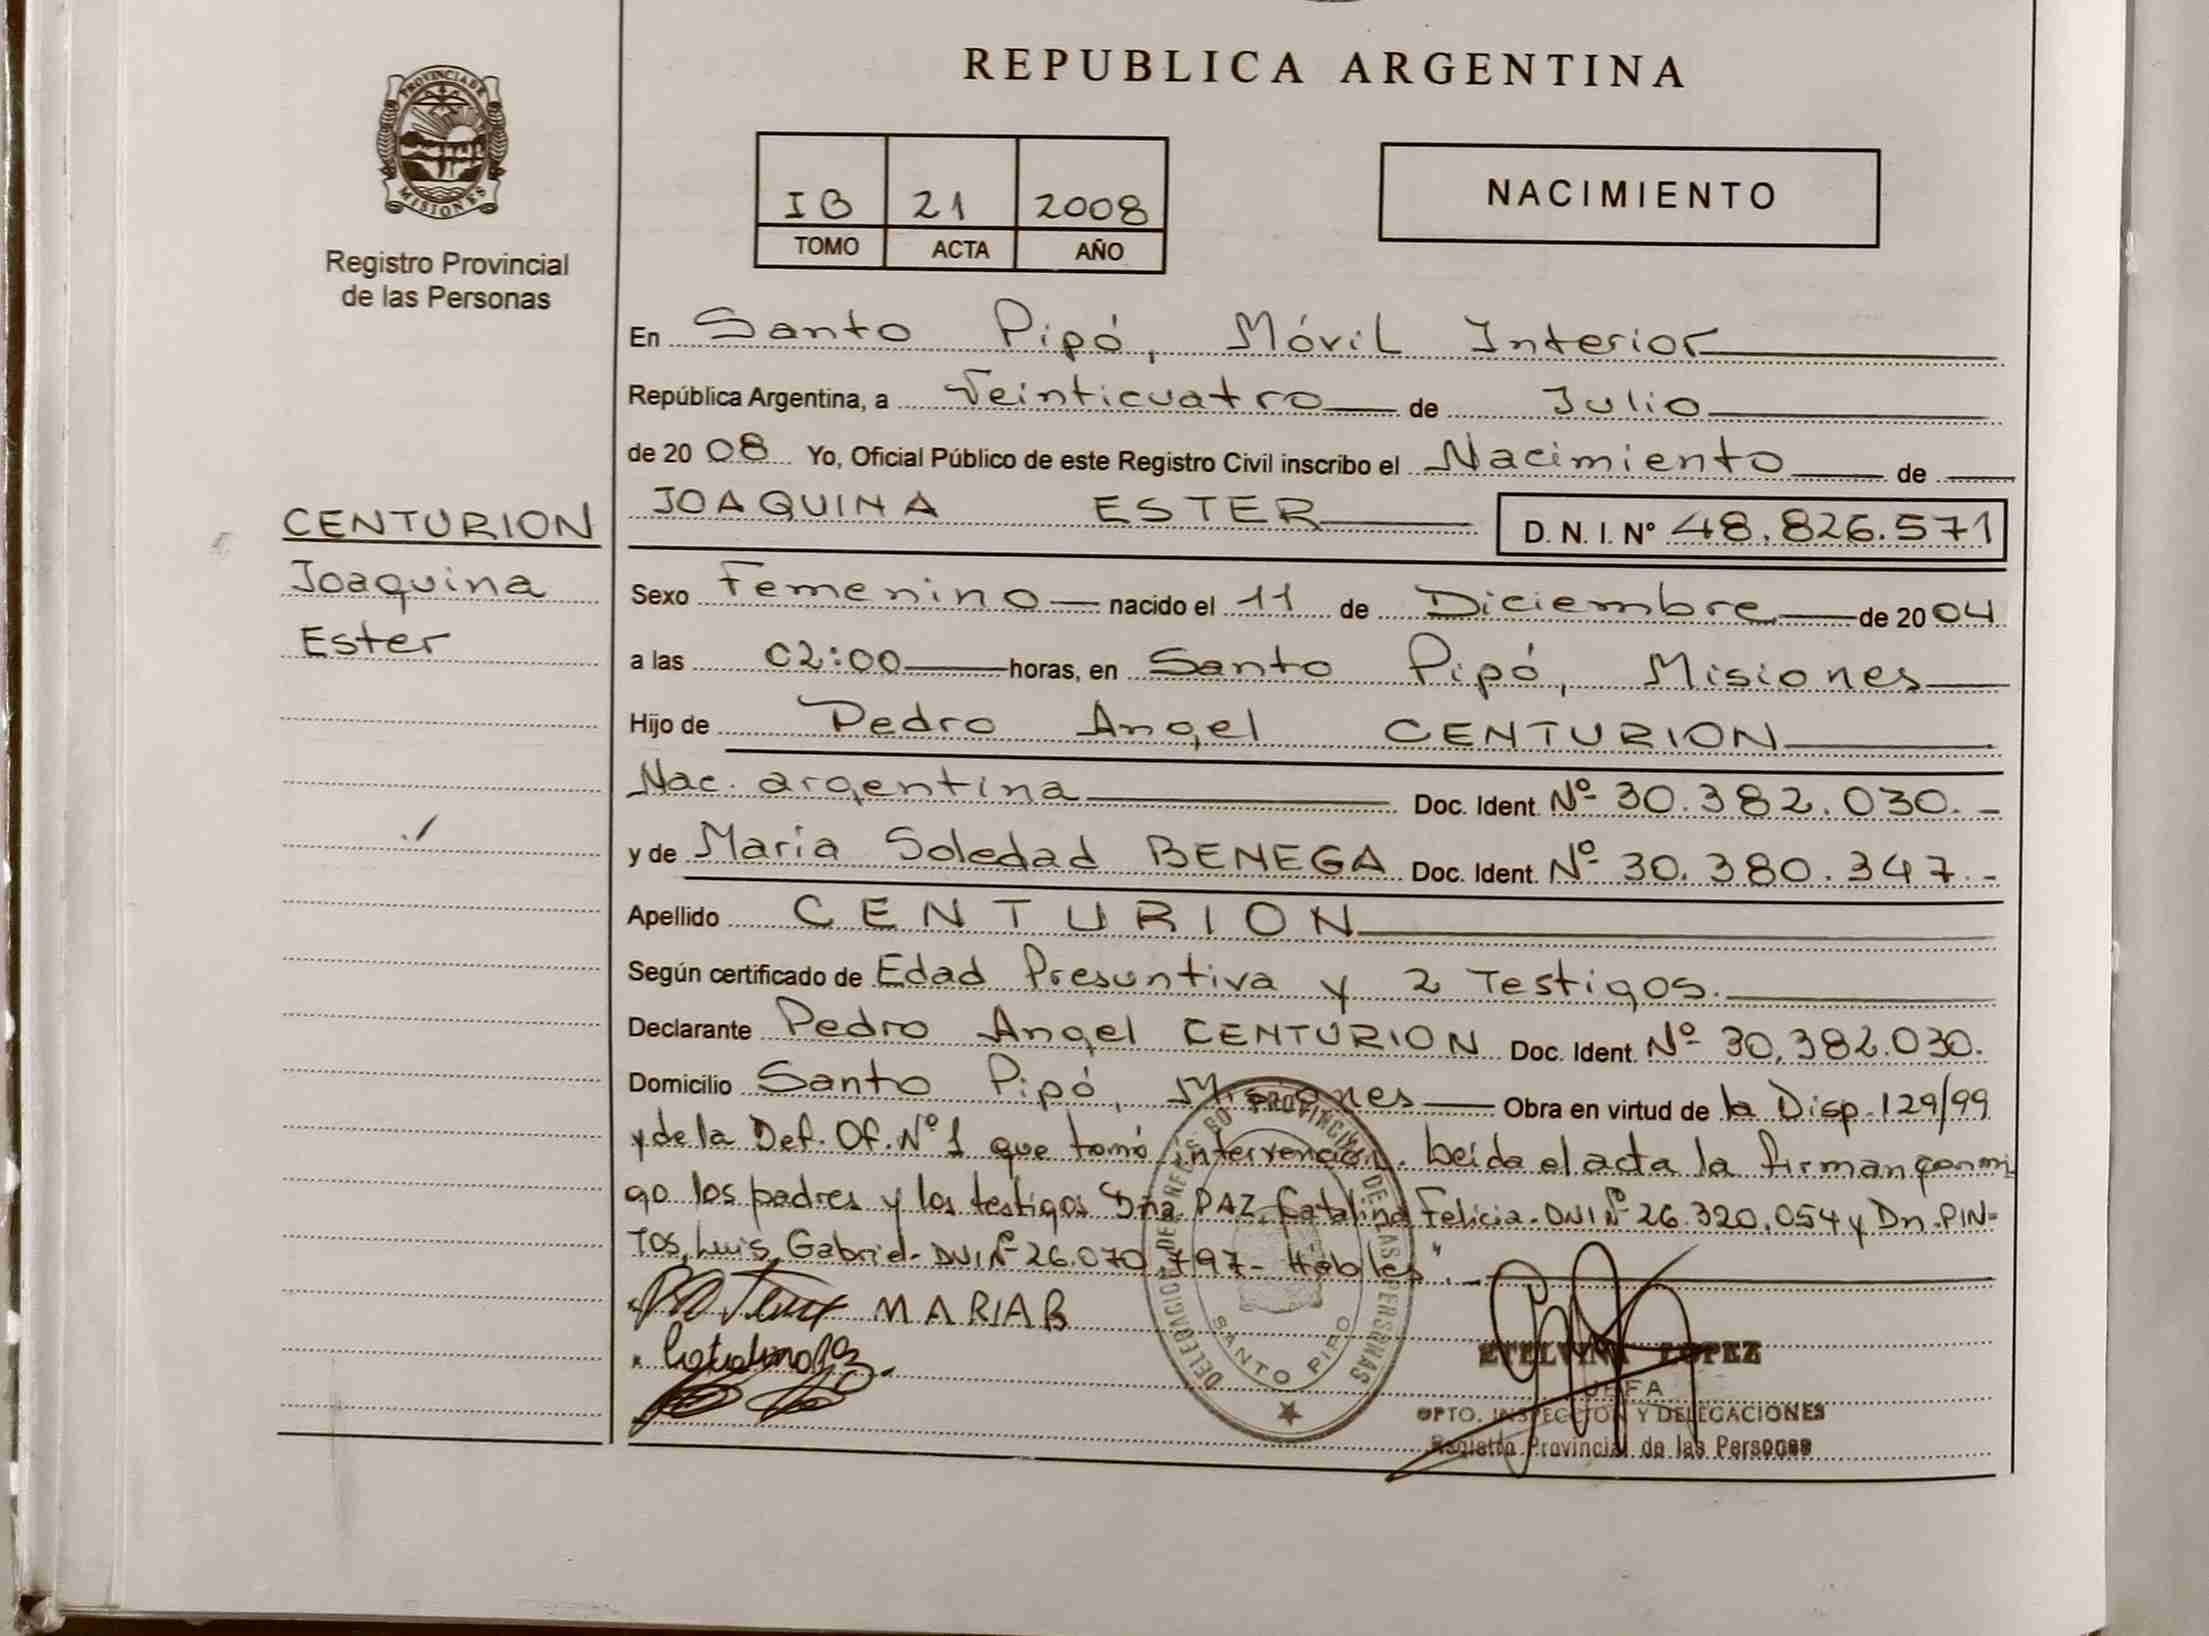 REPUBLICA ARGENTINA
PROVINCIA DE MISIONES
Registro Provincial
de las Personas
IB 21 2008
TOMO ACTA AÑO
NACIMIENTO
CENTURION
Joaquina
Ester
En Santo Pipó, Móvil Interior
República Argentina, a Veinticuatro de Julio
de 2008 Yo, Oficial Público de este Registro Civil inscribo el Nacimiento de
JOAQUINA ESTER D. N. I. Nº 48.826.571
Sexo Femenino nacido el 11 de Diciembre de 2004
a las 02:00 horas, en Santo Pipó, Misiones
Hijo de Pedro Angel CENTURION
Nac. argentina Doc. Ident. Nº 30.382.030.-
y de Maria Soledad BENEGA Doc. Ident. Nº 30.380.347.-
Apellido CENTURION
Según certificado de Edad Presuntiva y 2 Testigos.
Declarante Pedro Angel CENTURION Doc. Ident. Nº 30.382.030.
Domicilio Santo Pipó, Misiones Obra en virtud de la Disp. 129/99
y de la Def. Of. Nº 1 que tomó intervención. Leída el acta la firman conmi
go los padres y los testigos Dña. PAZ, Catalina Felicia. DNI Nº 26.320.054 y Dn. PIN-
TOS, Luis Gabriel. DNI Nº 26.070.797- Hábiles".
MARIA B
DELEGACION DE REG. PROVINCIAL DE LAS PERSONAS
SANTO PIPO
ETELVINA LOPEZ
JEFA
DPTO. INSPECCION Y DELEGACIONES
Registro Provincial de las Personas